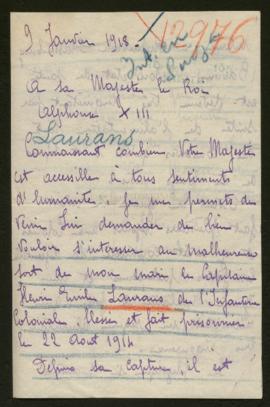 9 Janvier 1918
12976
A sa Majesté le Roi
Alphonse XIII
Laurans
Connaissant combien Votre Majesté
est accessible à tous sentiments
d'humanité, je me permets de
venir lui demander de bien
vouloir s'intéresser au malheureux
sort de mon mari le Capitaine
Henri Emile Laurans de l'Infanterie
Coloniale, blessé et fait prisonnier
le 22 Aout 1914
Depuis sa capture, il est